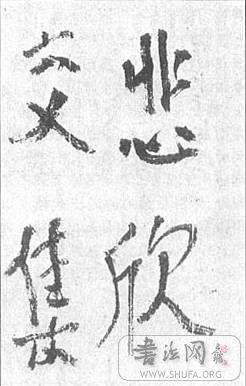 悲欣
交集
書法网
WWW.SHUFA.ORG